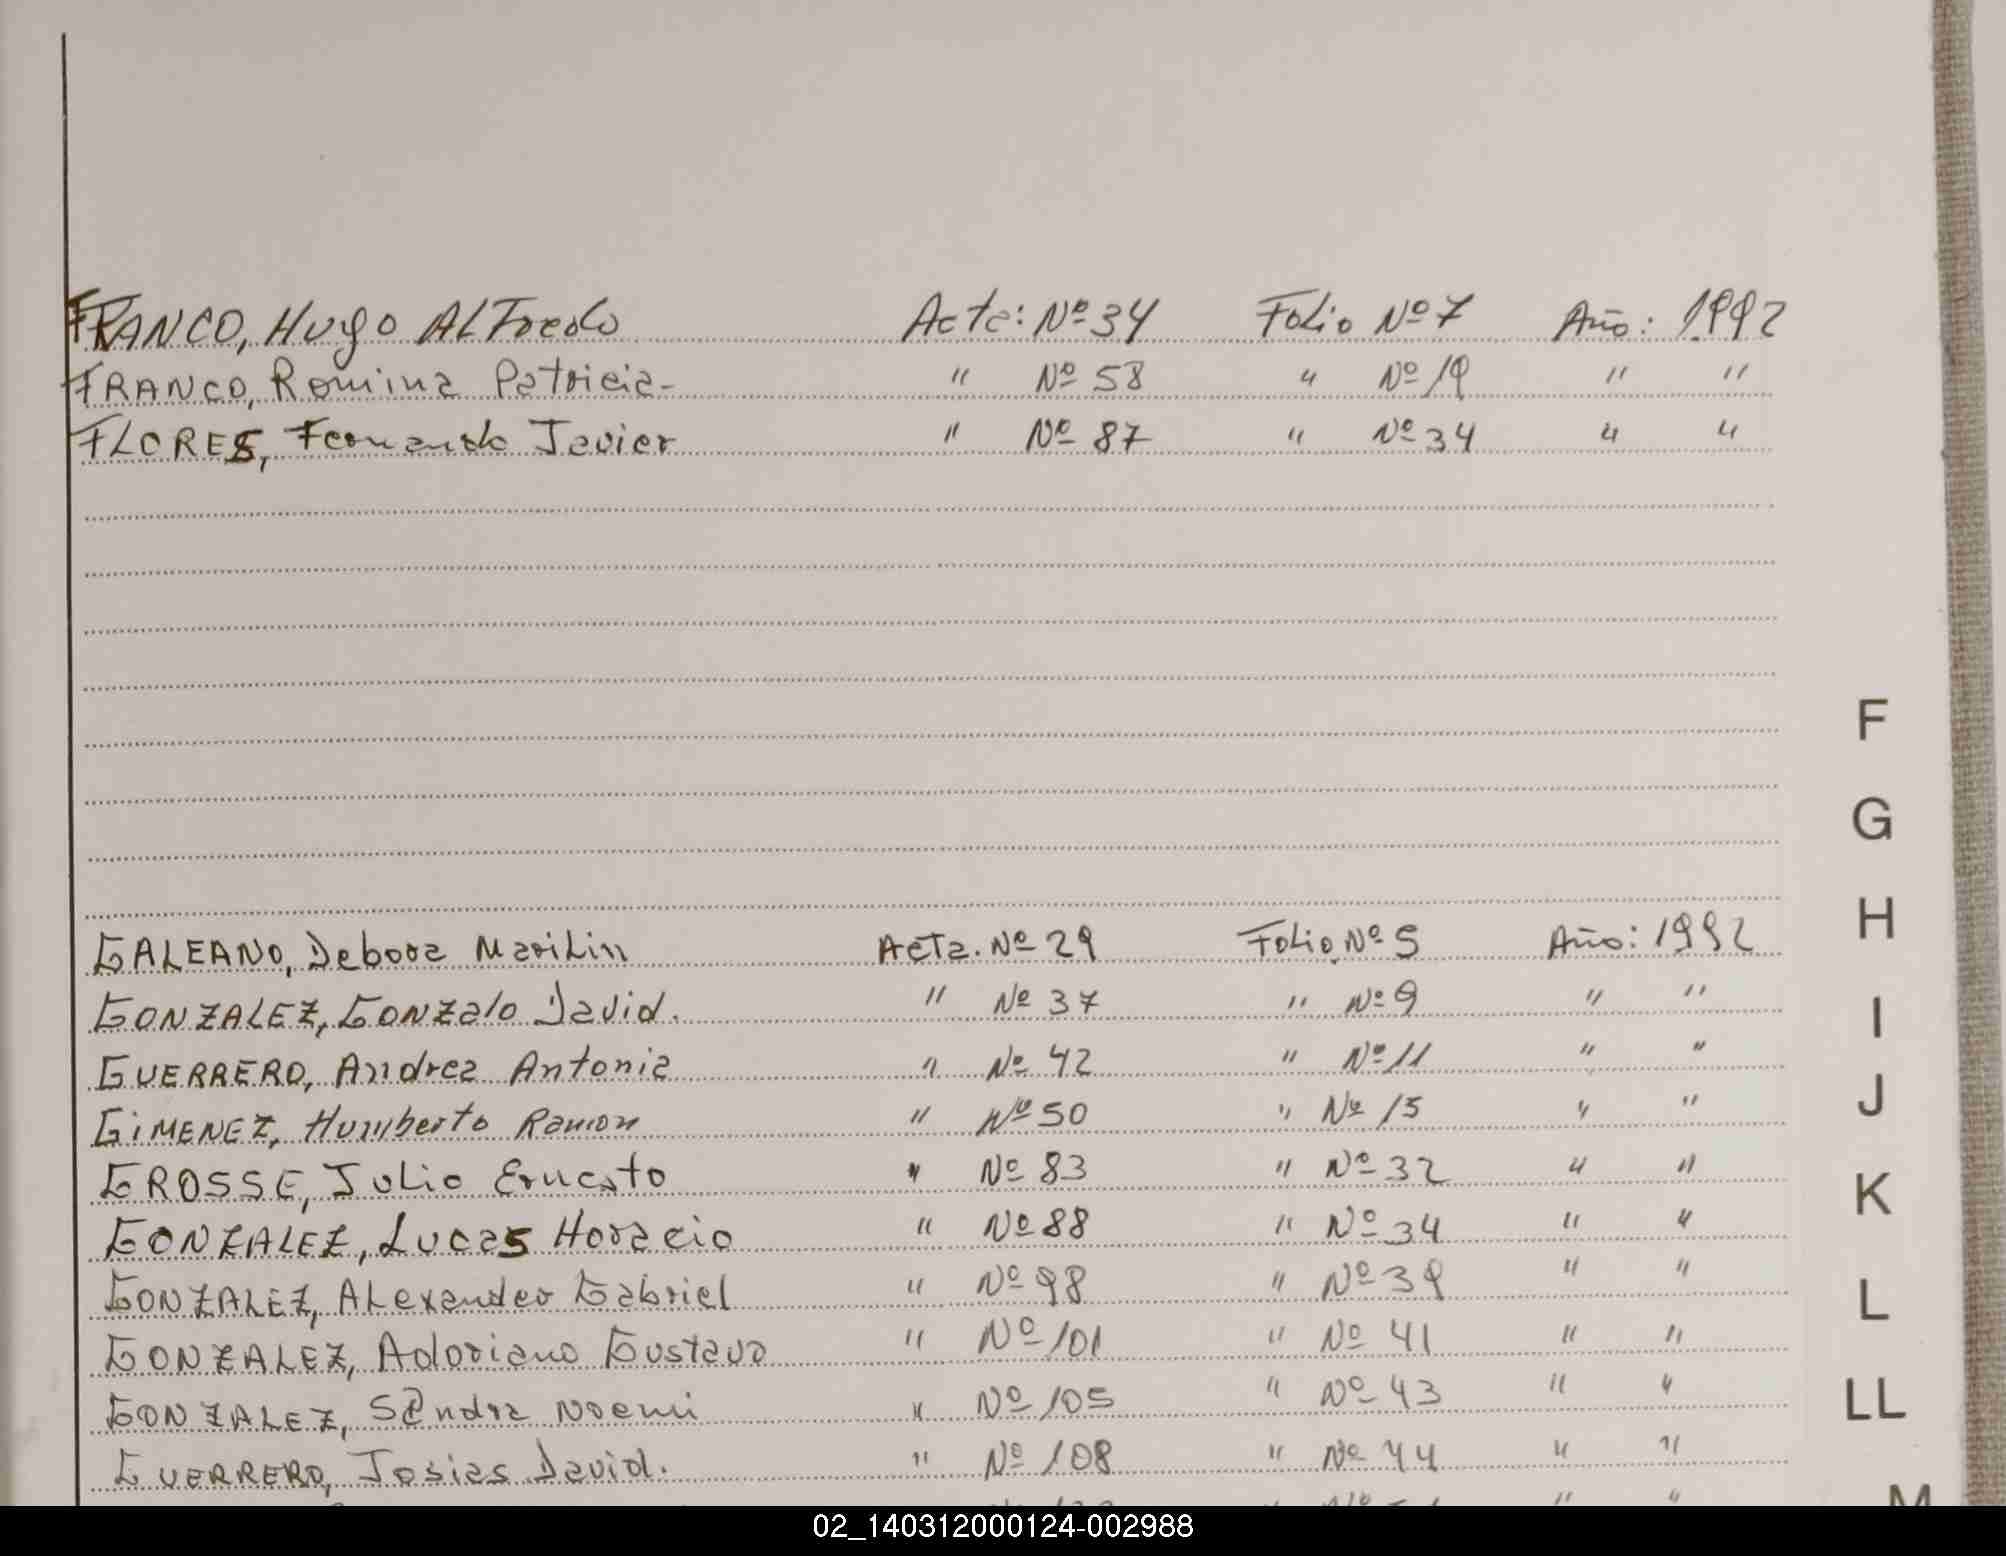 FRANCO, Hugo ALFredo Acta: Nº 34 Folio Nº 7 Año: 1992
FRANCO, Romina Patricia- " Nº 58 " Nº 19 " "
FLORES, Fernando Javier " Nº 87 " Nº 34 " "
GALEANO, Debora MariLin Acta. Nº 29 Folio Nº 5 Año: 1992
GONZALEZ, GONZalo David. " Nº 37 " Nº 9 " "
GUERRERO, Andrea Antonia " Nº 42 " Nº 11 " "
GiMENEZ, Humberto Ramon " Nº 50 " Nº 15 " "
GROSSE, JuLio Ernesto " Nº 83 " Nº 32 " "
GONZALEZ, Lucas Horacio " Nº 88 " Nº 34 " "
GONZALEZ, ALexander Gabriel " Nº 98 " Nº 39 " "
GONZALEZ, Adoriano Gustavo " Nº 101 " Nº 41 " "
GONZALEZ, S@ndra Noemi " Nº 105 " Nº 43 " "
GUERRERO, Josias David. " Nº 108 " Nº 44 " "
F
G
H
I
J
K
L
LL
M
02_140312000124-002988